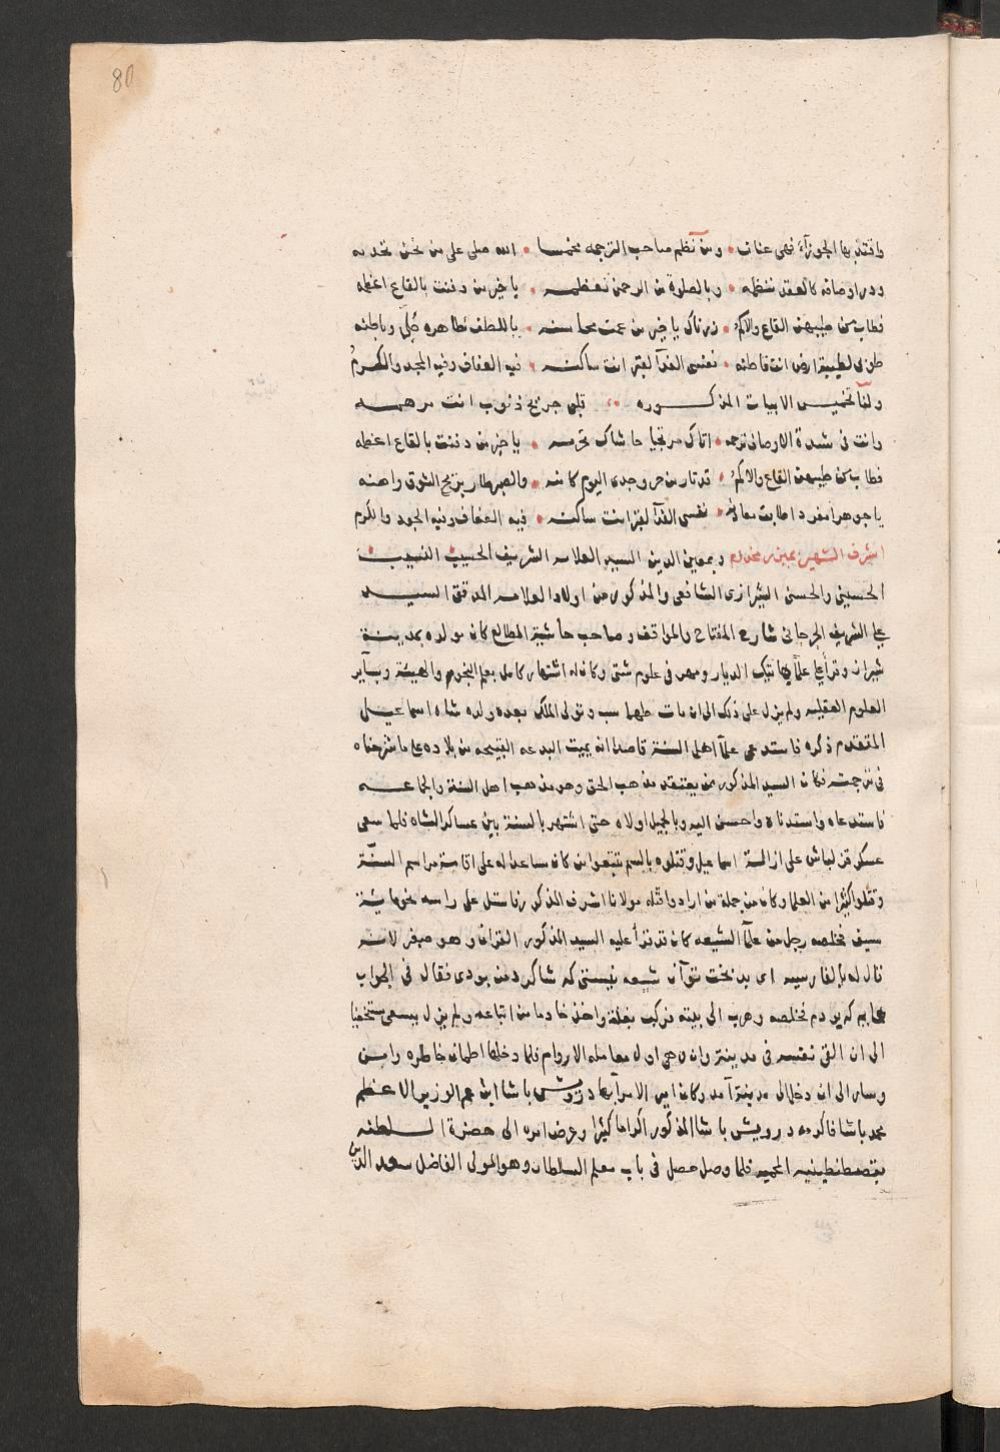 80
واقتد بها الجوزآء فهى عنان • ومن نظم صاحب الترجمه مخمسا • الله صلى على من نحن نخدمه
ودر اوصافه كالعقد ننظمه • وبالصلوة من الرحمن نعظمه • يا خير من دفنت بالقاع اعظمه
فطاب من طيبهن القاع والاكم • زرناك يا خير من عمت محاسنه • باللطف ظاهره حلى وباطنه
طوبى لطيبة ارض انت قاطنه • نفسى الفدآ لقبر انت ساكنه • فيه العفاف وفيه المجد والكرم
ولنا تخميس الابيات المذكوره • قلبى جريح ذنوب انت مرهمه
وانت فى شدة الاوصاف ترحمه • اتاك مرتجيا حاشاك تحرمه • يا خير من دفنت بالقاع اعظمه
فطاب من طيبهن القاع والاكم • قد ثار من حر وجدى اليوم كامنه • والصبر طار بريح الشوق واهنه
يا جوهرا مفردا طابت معادنه • نفسى الفدآ لقبر انت ساكنه • فيه العفاف وفيه الجود والكرم
اشرف الشهير بميرزا مخدوم وبمعين الدين السيد العلامه الشريف الحسيب النسيب
الحسينى والحسنى الشيرازى الشافعى والمذكور من اولاد العلامه المدقق السيد
على الشريف الجرجانى شارح المفتاح والمواقف وصاحب حاشية المطالع كان مولده بمدينة
شيراز وقرأ على علمآ بها تيك الديار ومهر فى علوم شتى وكان له اشتهار كامل بعلم النجوم والهيئة وسآير
العلوم العقليه ولم يزل على ذلك الى ان مات طهماسب وتولى الملك بعده ولده شاه اسماعيل
المتقدم ذكره فاستدعى علمآ اهل السنة قاصدا انه يميت البدعه القبيحه من بلاده على ما شرحناه
فى ترجمته فكان السيد المذكور ممن يعتقد مذهب الحق وهو مذهب اهل السنة والجماعه
فاستدعاه واستدناه واحسن اليه وبالجميل اولاه حتى اشتهر بالسنة بين عساكر الشاه فلما سعى
عسكر قزلباش على ازالة اسماعيل وقتلوه بالسم تتبعوا من كان ساعدا له على اقامة مراسم السنة
وقتلوا كثيرا من العلما وكان من جملة من ارادوا قتله مولانا اشرف المذكور فاستل على راسه نحو مائة
سيف فخلصه رجل من علمآ الشيعه كان قد قرأ عليه السيد المذكور القران وهو صغير لانه
قال له بالفارسيه اى بدبخت تو آن شيعه نيستى كه شاكرد من بودى فقال فى الجواب
بودم فخلصه وهرب الى بيته فركب بغلة واخذ خادما من اتباعه ولم يزل يسعى مستخفيا
الى ان القى نفسه فى مدينة وان وهى اول معاملة الاروام فلما دخلها اطمان خاطره وامن
وسار الى ان دخل الى مدينة آمد وكان امير الامرآ بها درويش باشا ابن عم الوزير الاعظم
محمد باشا فاكرمه درويش باشا المذكور اكراما كثيرا وعرض امره الى حضرة السلطنه
بقصطنطينيه المحميه فلما وصل حصل فى باب معلم السلطان وهو المولى الفاضل سعد الدين